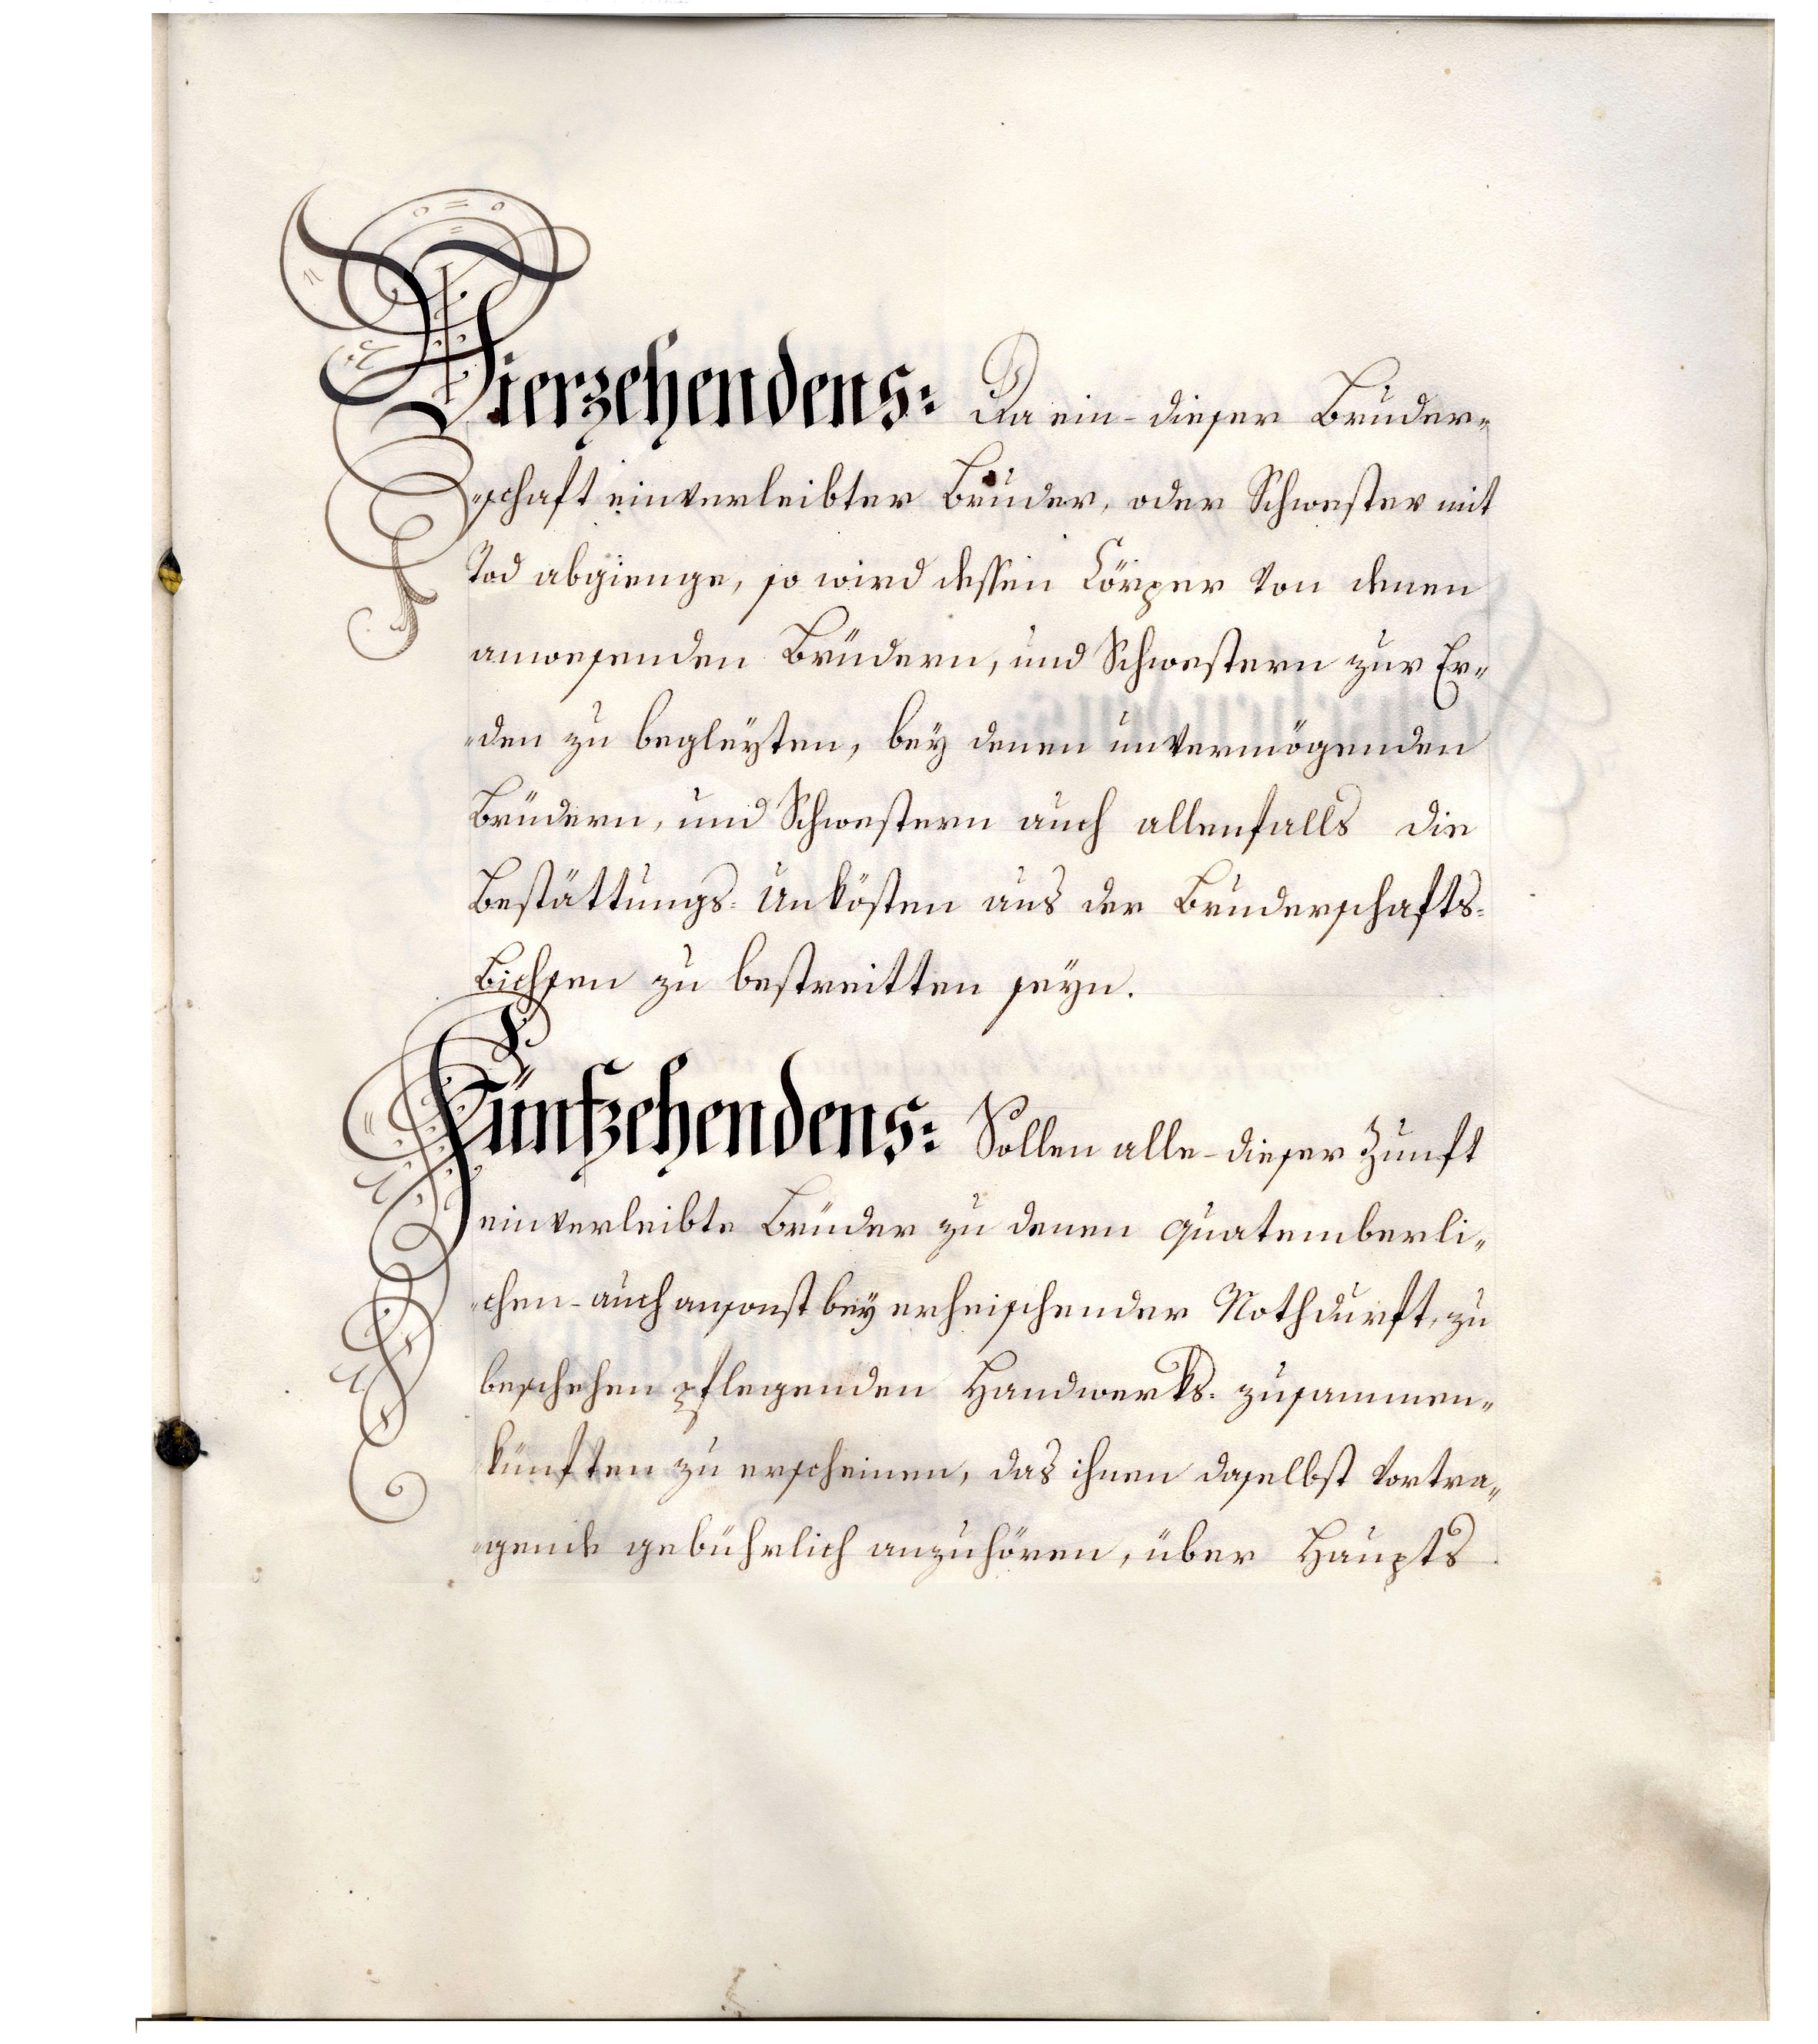 Vierzehendens: Da ein-dieser Bruder„
„schaft einverleibter Bruder, oder Schwester mit
Tod abgienge, so wird dessen Cörper von denen
anwesenden Brüdern, und Schwestern zur Er„
„den zu begleyten, bey denen unvermögenden
Brüdern, und Schwestern auch allenfalls die
Bestättungs-Unkösten aus der Bruderschafts-
Bichsen zu bestreitten seyn.
Fünfzehendens: Sollen alle-dieser Zunft
einverleibte Brüder zu denen quatemberli„
„chen-auch ansonst bey erheischender Nothdurft, zu
beschehen pflegenden Handwerks-zusammen„
künften zu erscheinen, das ihnen daselbst Vortra„
„gende gebührlich anzuhören, über Haupts